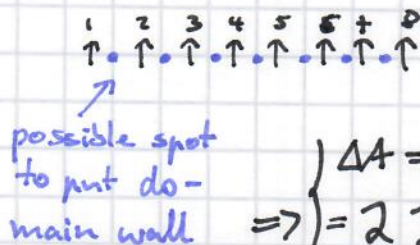 1 2 3 4 5 6 7 8
↑ • ↑ • ↑ • ↑ • ↑ • ↑ • ↑ • ↑
possible spot
to put do-
main wall
ΔA =
⇒ { = 2